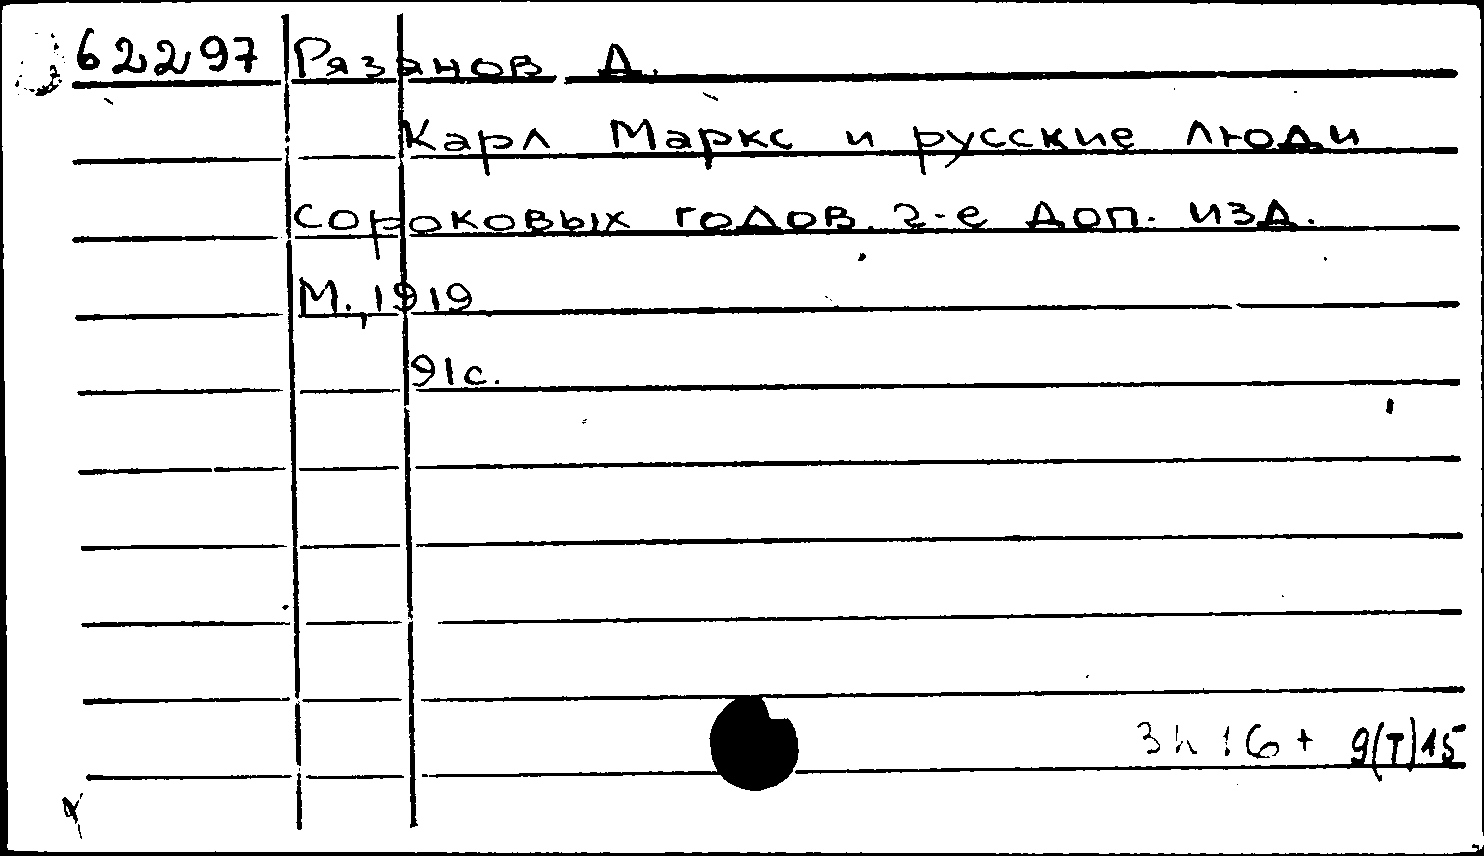 62297 Рязанов Д.
Карл Маркс и русские люди
сороковых годов. 2-е доп. изд.
М., 1919
91с.
9(Т)15